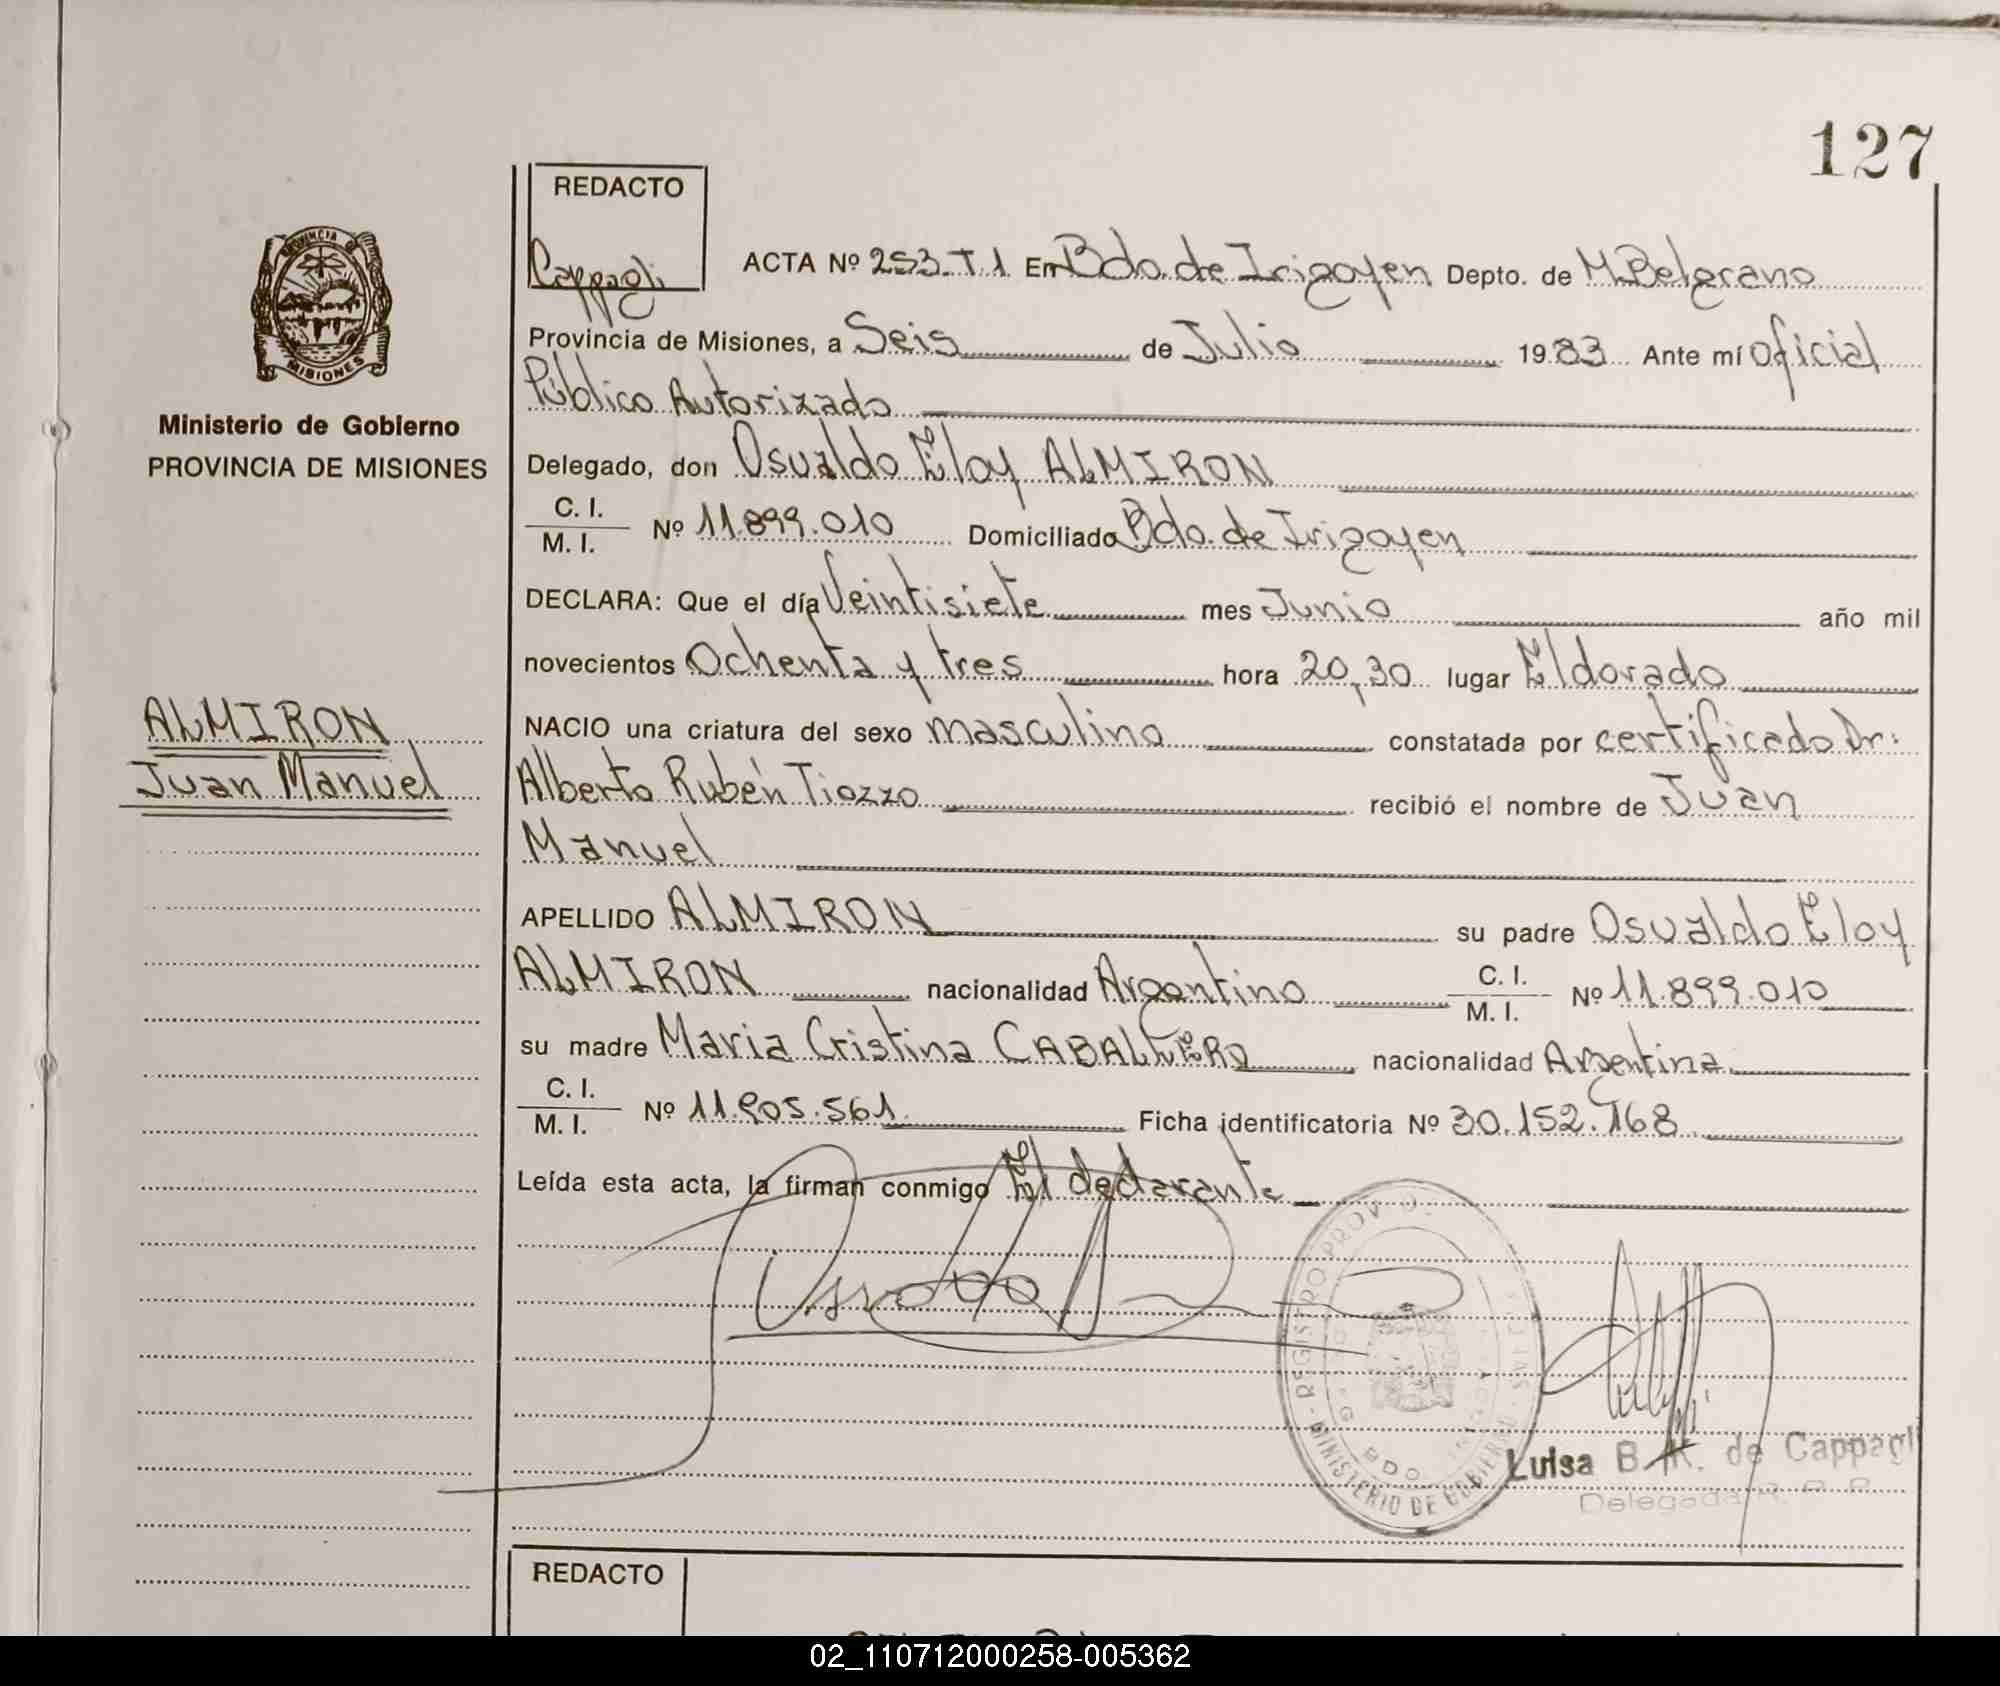 127
REDACTO
Cappagli
ACTA Nº 253.T.1 En Bdo. de Irigoyen Depto. de M. Belgrano
Provincia de Misiones, a Seis de Julio 1983 Ante mí Oficial
Público Autorizado
PROVINCIA DE
MISIONES
Ministerio de Gobierno
PROVINCIA DE MISIONES
Delegado, don Osvaldo Eloy ALMIRON
C. I.
M. I. Nº 11.899.010 Domiciliado Bdo. de Irigoyen
DECLARA: Que el día Veintisiete mes Junio año mil
novecientos Ochenta y tres hora 20,30 lugar Eldorado
NACIO una criatura del sexo masculino constatada por certificado Dr:
Alberto Rubén Tiozzo recibió el nombre de Juan
Manuel
ALMIRON
Juan Manuel
APELLIDO ALMIRON su padre Osvaldo Eloy
ALMIRON nacionalidad Argentino C. I.
M. I. Nº 11.899.010
su madre Maria Cristina CABALLERO nacionalidad Argentina
C. I.
M. I. Nº 11.905.561 Ficha identificatoria Nº 30.152.168
Leída esta acta, la firman conmigo El declarante
REGISTRO PROV
MINISTERIO DE GOBIERNO
BDO
Luisa B. K. de Cappagli
Delegada R. P. P.
REDACTO
02_110712000258-005362